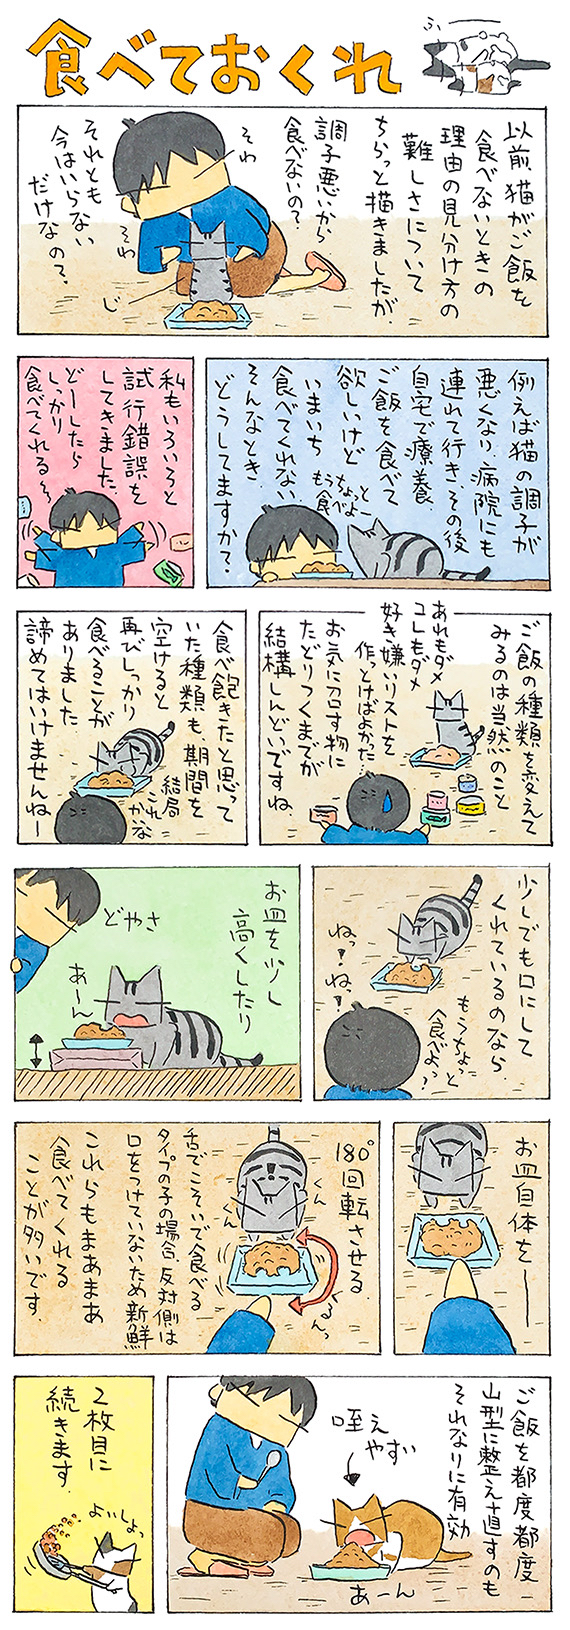 食べておくれ
ふー
以前、猫がご飯を
食べないときの
理由の見分け方の
難しさについて
ちらっと描きましたが、
調子悪いから
食べないの?
それとも
今はいらない
だけなの?
そわ
そわ
じー
例えば猫の調子が
悪くなり、病院にも
連れて行き、その後
自宅で療養、
ご飯を食べて
欲しいけど
いまいち
食べてくれない、
そんなとき、
どうしてますか?
もうちょっと
食べよー
私もいろいろと
試行錯誤を
してきました。
どーしたら
しっかり
食べてくれる〜
ご飯の種類を変えて
みるのは当然のこと
あれもダメ
コレもダメ
好き嫌いリストを
作っとけばよかった
お気に召す物に
たどりつくまでが
結構しんどいですね、
食べ飽きたと思って
いた種類も、期間を
空けると
再びしっかり
食べることが
ありました
諦めてはいけませんねー
結局
これかな
少しでも口にして
くれているのなら、
もうちょっと
食べよっ?
ねっ!ね、!
お皿を少し
高くしたり
どやさ
あーん
お皿自体を──
180°
回転させる。
くん
くん
くるんっ
舌でこそいで食べる
タイプの子の場合、反対側は
口をつけていないため新鮮
これらもまあまあ
食べてくれる
ことが多いです。
ご飯を都度都度
山型に整え直すのも
それなりに有効
咥え
やすい
あーん
2枚目に
続きます。
よいしょっ